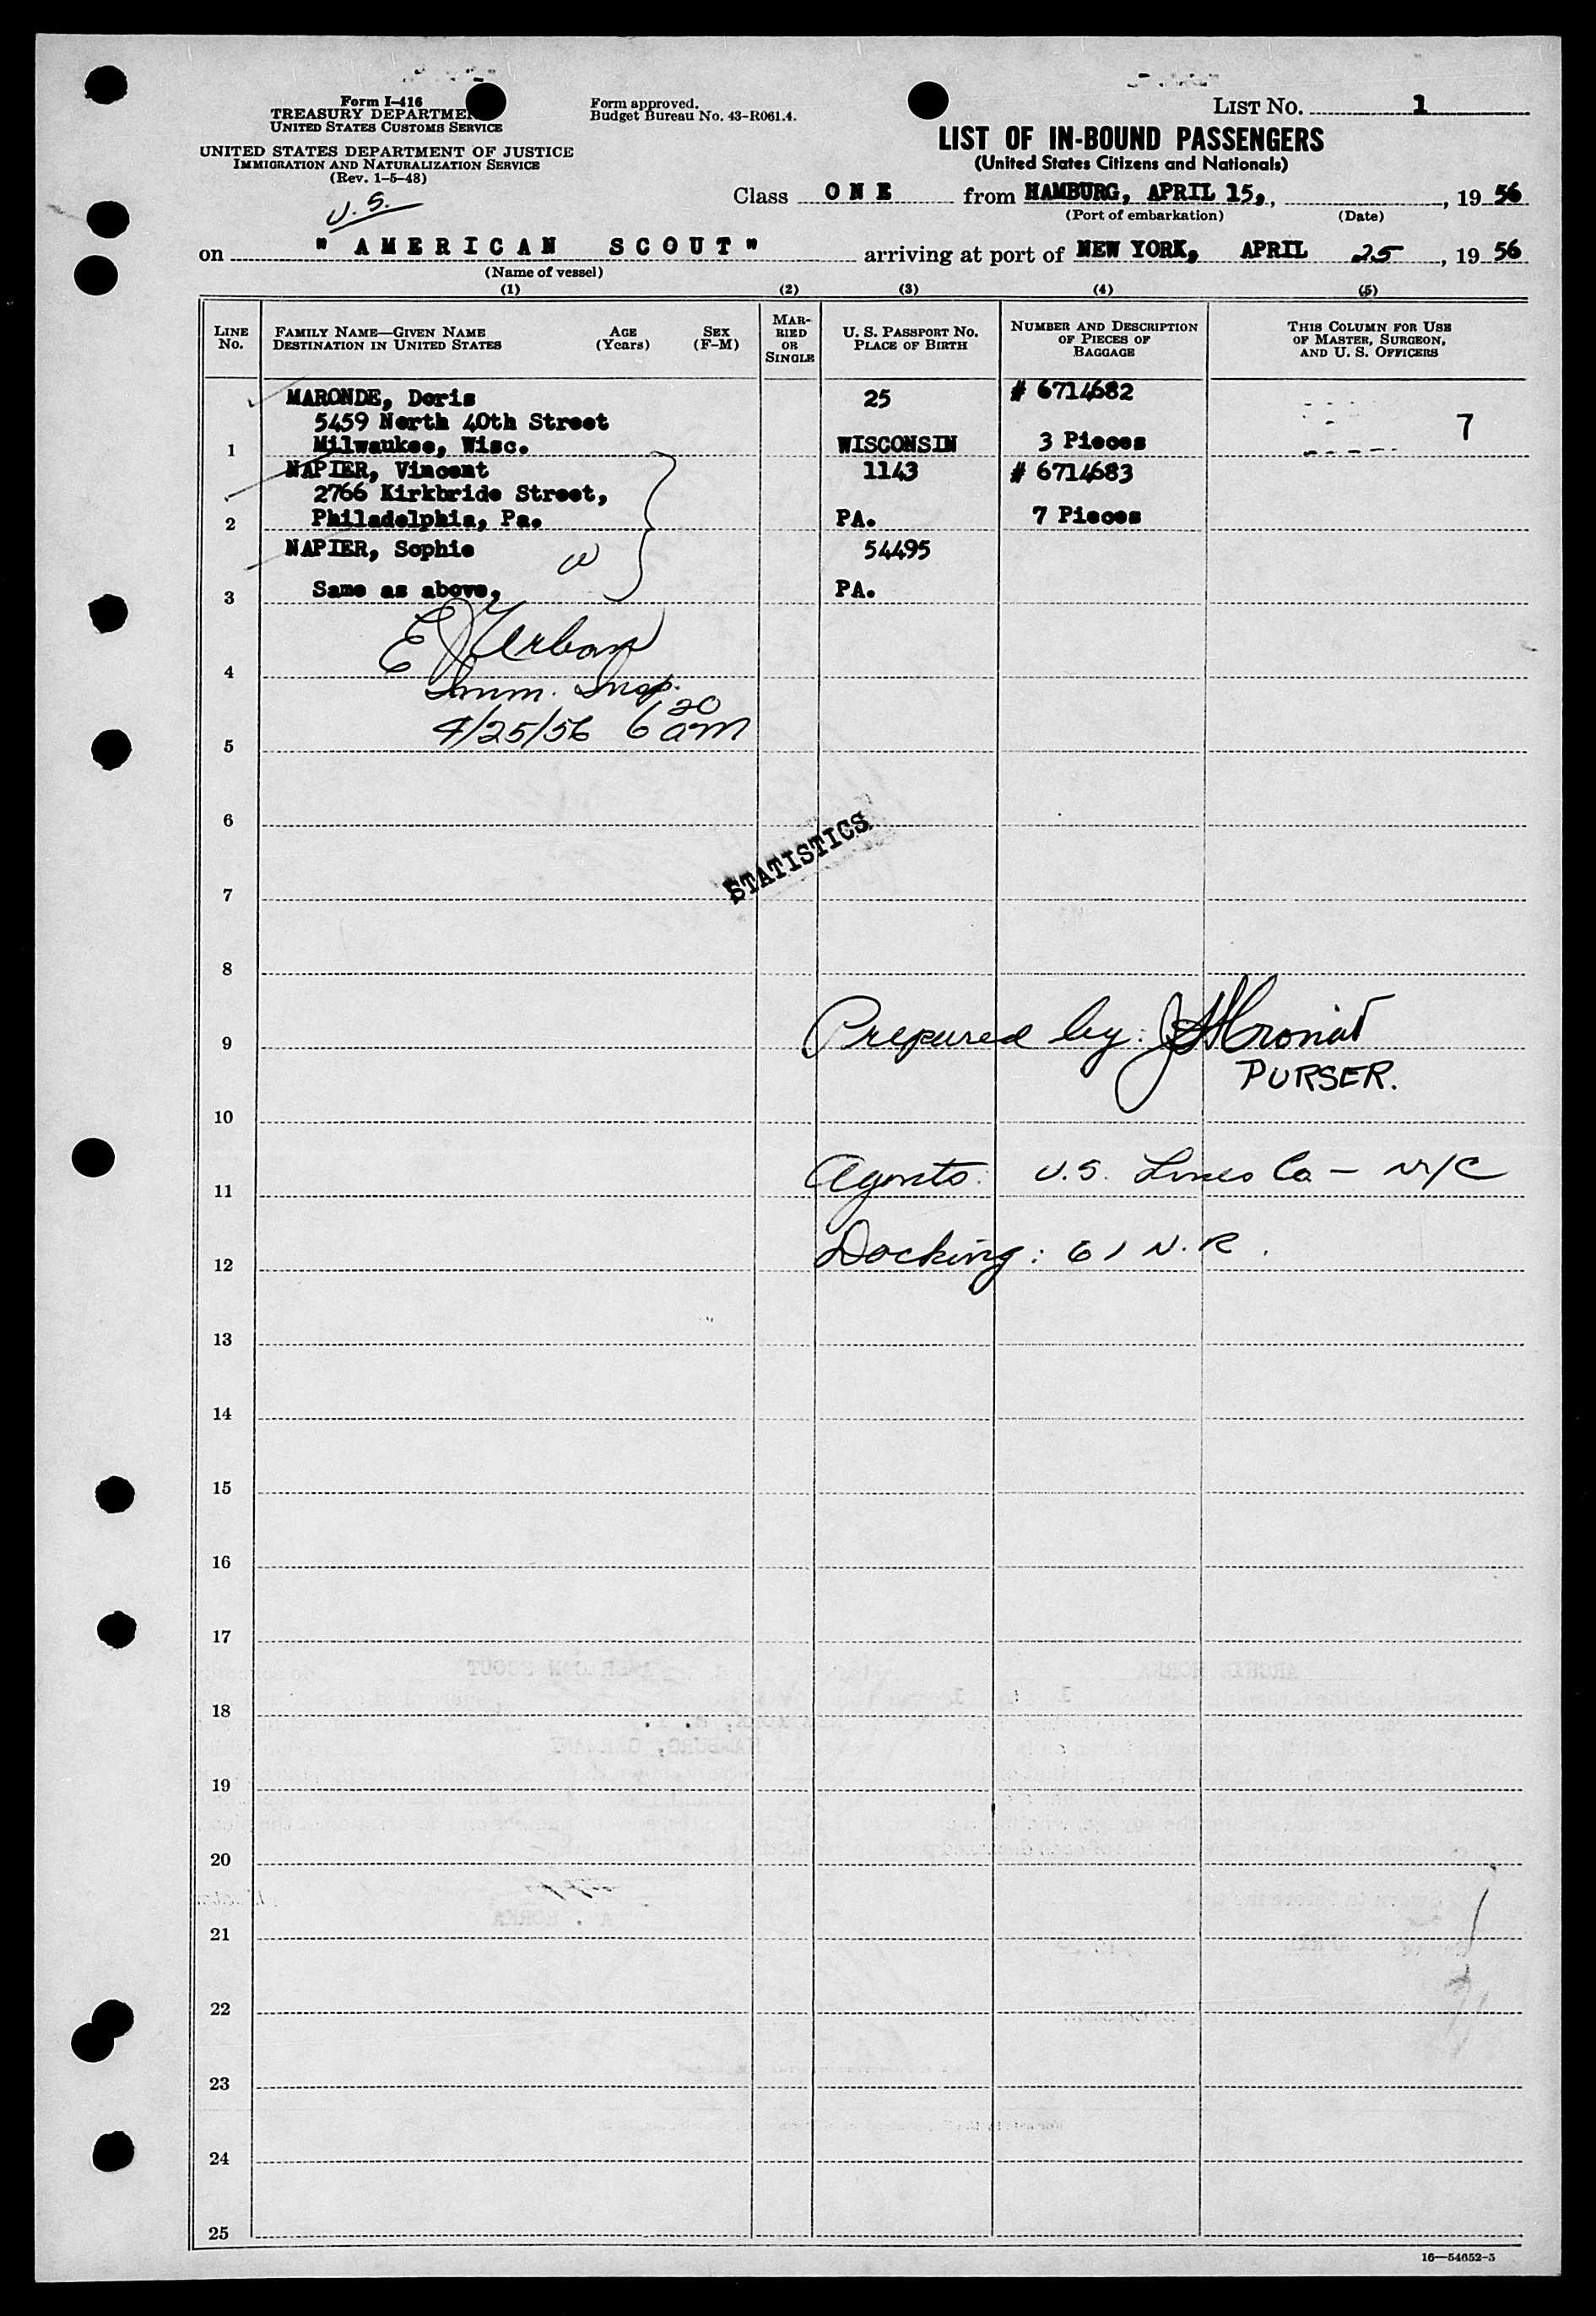 Form I-416
TREASURY DEPARTME
UNITED STATES CUSTOMS SERVICE
UNITED STATES DEPARTMENT OF JUSTICE
IMMIGRATION AND NATURALIZATION SERVICE
(Rev. 1-5-48)
U.S.
Form approved.
Budget Bureau No. 43-R061.4.
LIST NO. 1
LIST OF IN-BOUND PASSENGERS
(United States Citizens and Nationals)
Class ONE from HAMBURG, APRIL 15,, , 19 56
(Port of embarkation) (Date)
on " AMERICAN SCOUT" arriving at port of NEW YORK, APRIL 25, 19 56
(Name of vessel)
(1) (2) (3) (4) (5)
LINE No.
FAMILY NAME—GIVEN NAME AGE SEX
DESTINATION IN UNITED STATES (Years) (F-M)
MAR-
RIED
OR
SINGLE
U. S. PASSPORT NO.
PLACE OF BIRTH
NUMBER AND DESCRIPTION
OF PIECES OF
BAGGAGE
THIS COLUMN FOR USE
OF MASTER, SURGEON,
AND U. S. OFFICERS
MARONDE, Doris 25 # 6714682
5459 North 40th Street 7
1 Milwaukee, Wisc. WISCONSIN 3 Pieces
NAPIER, Vincent 1143 # 6714683
2766 Kirkbride Street,
2 Philadelphia, Pa. PA. 7 Pieces
NAPIER, Sophie W 54495
3 Same as above, PA.
E J Urban
4 Imm. Insp.
4/25/56 6 20 am
5
6
STATISTICS
7
8
9 Prepared by:
PURSER.
10
11 Agents: U.S. Lines Co — NYC
12 Docking: 61 N.R.
13
14
15
16
17
18
19
20
21
22
23
24
25
16—54652-5